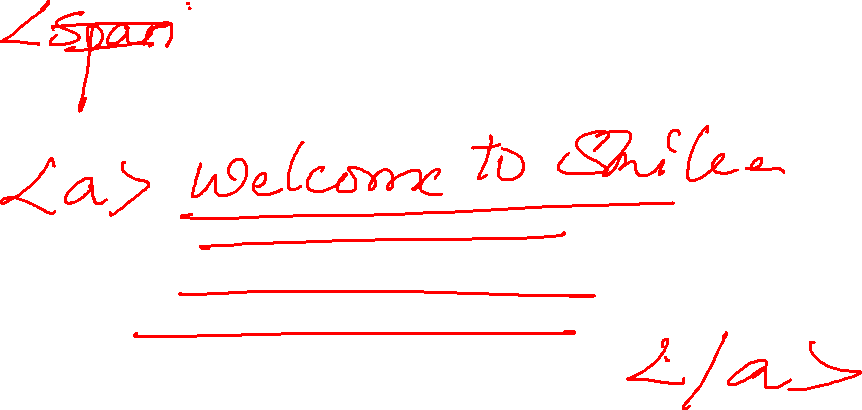 <span
<a> Welcome to Smile
</a>